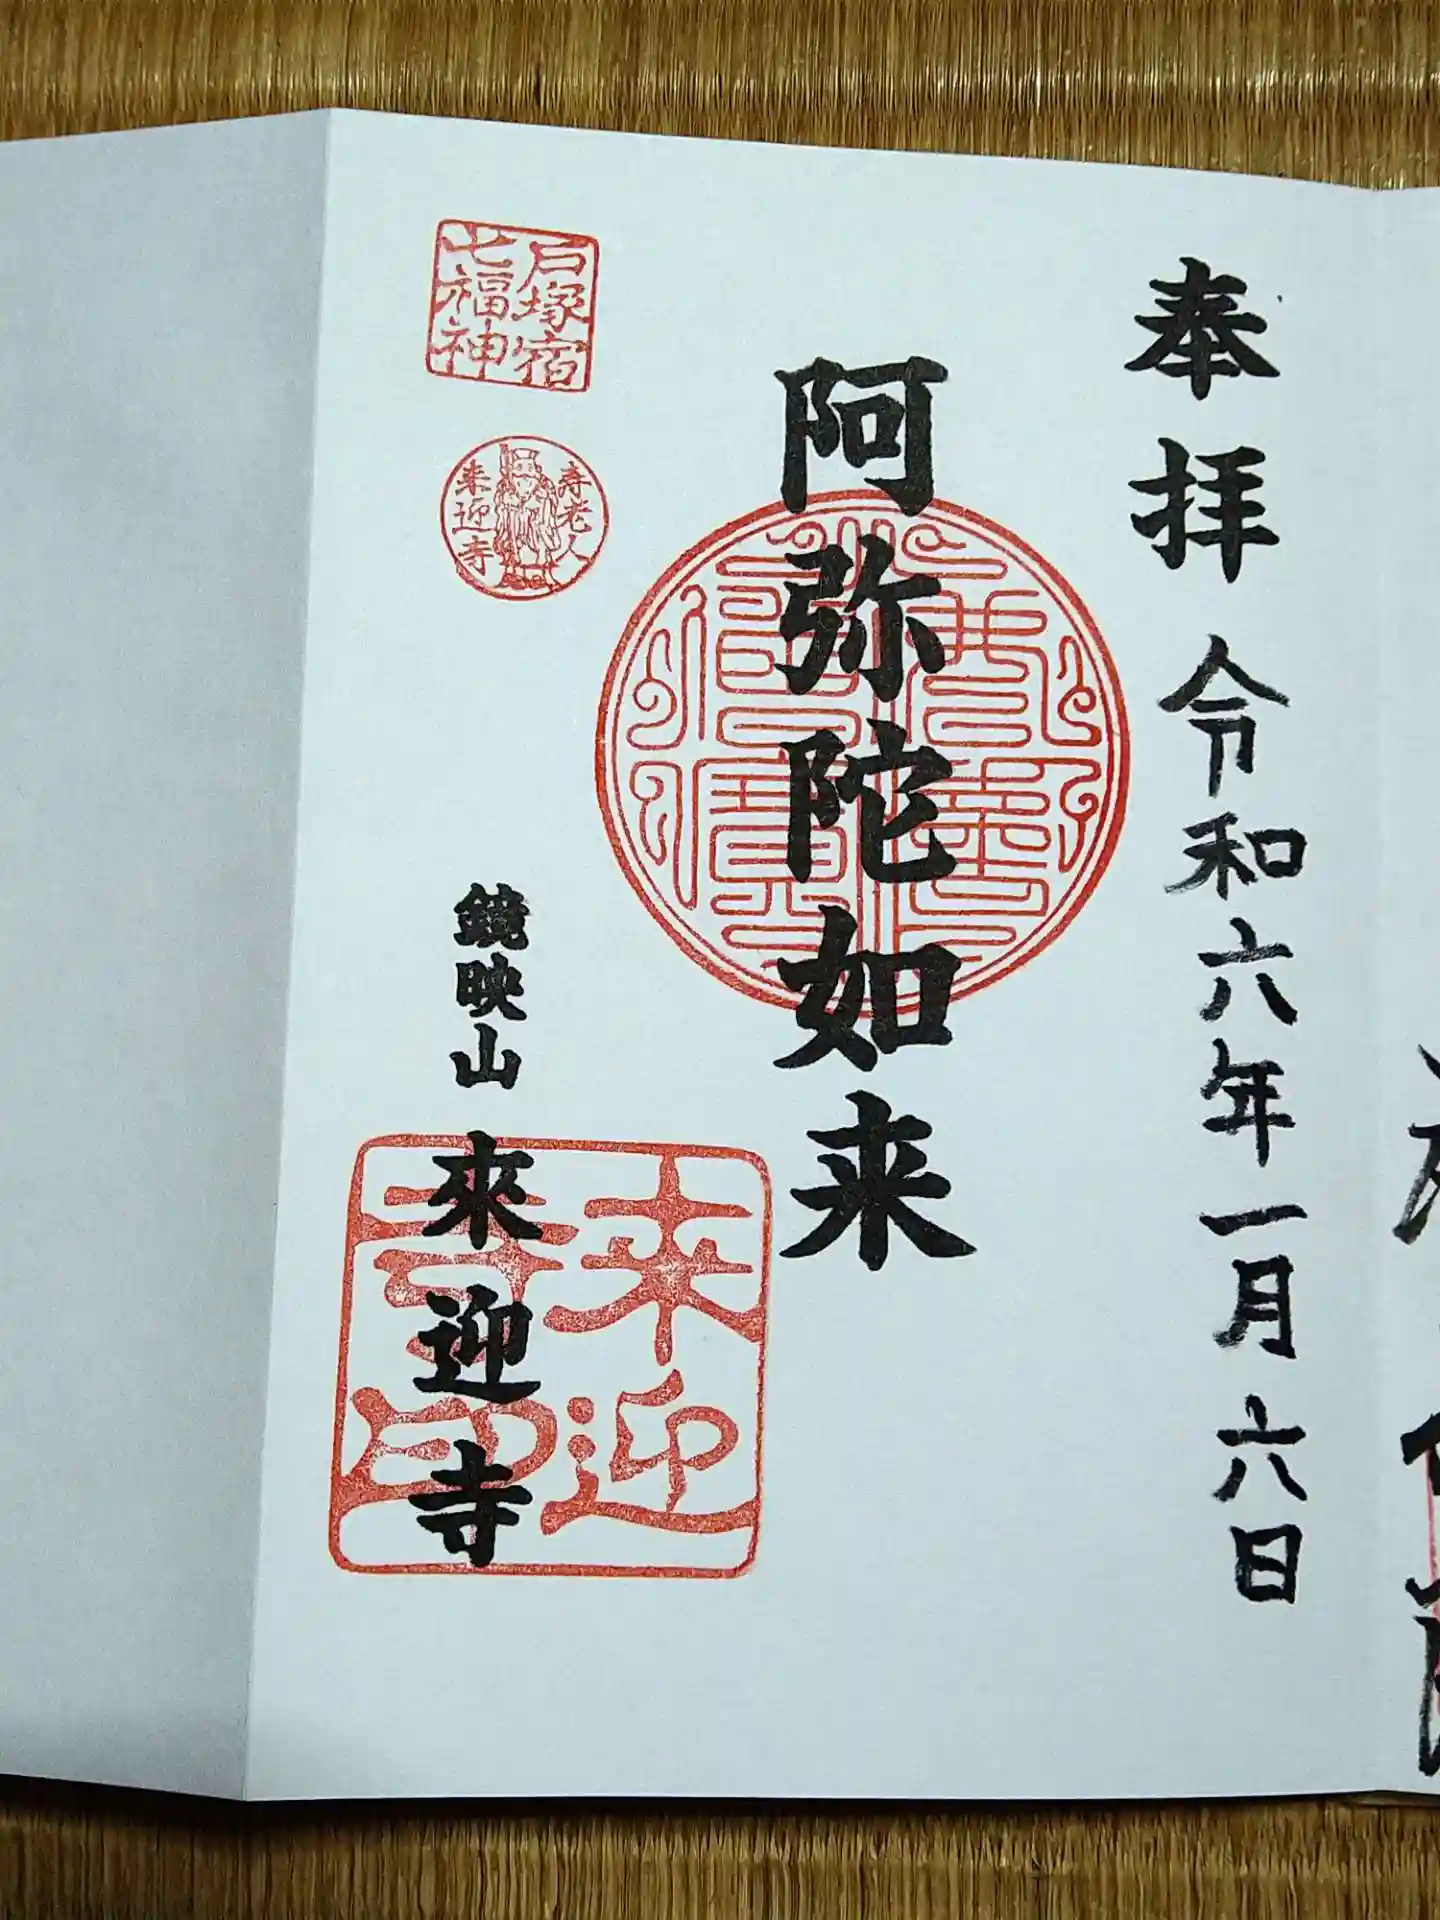 奉拝 令和六年一月六日
阿弥陀如来
戸塚宿
七福神
寿老人
来迎寺
鏡映山 來迎寺
来迎
寺印